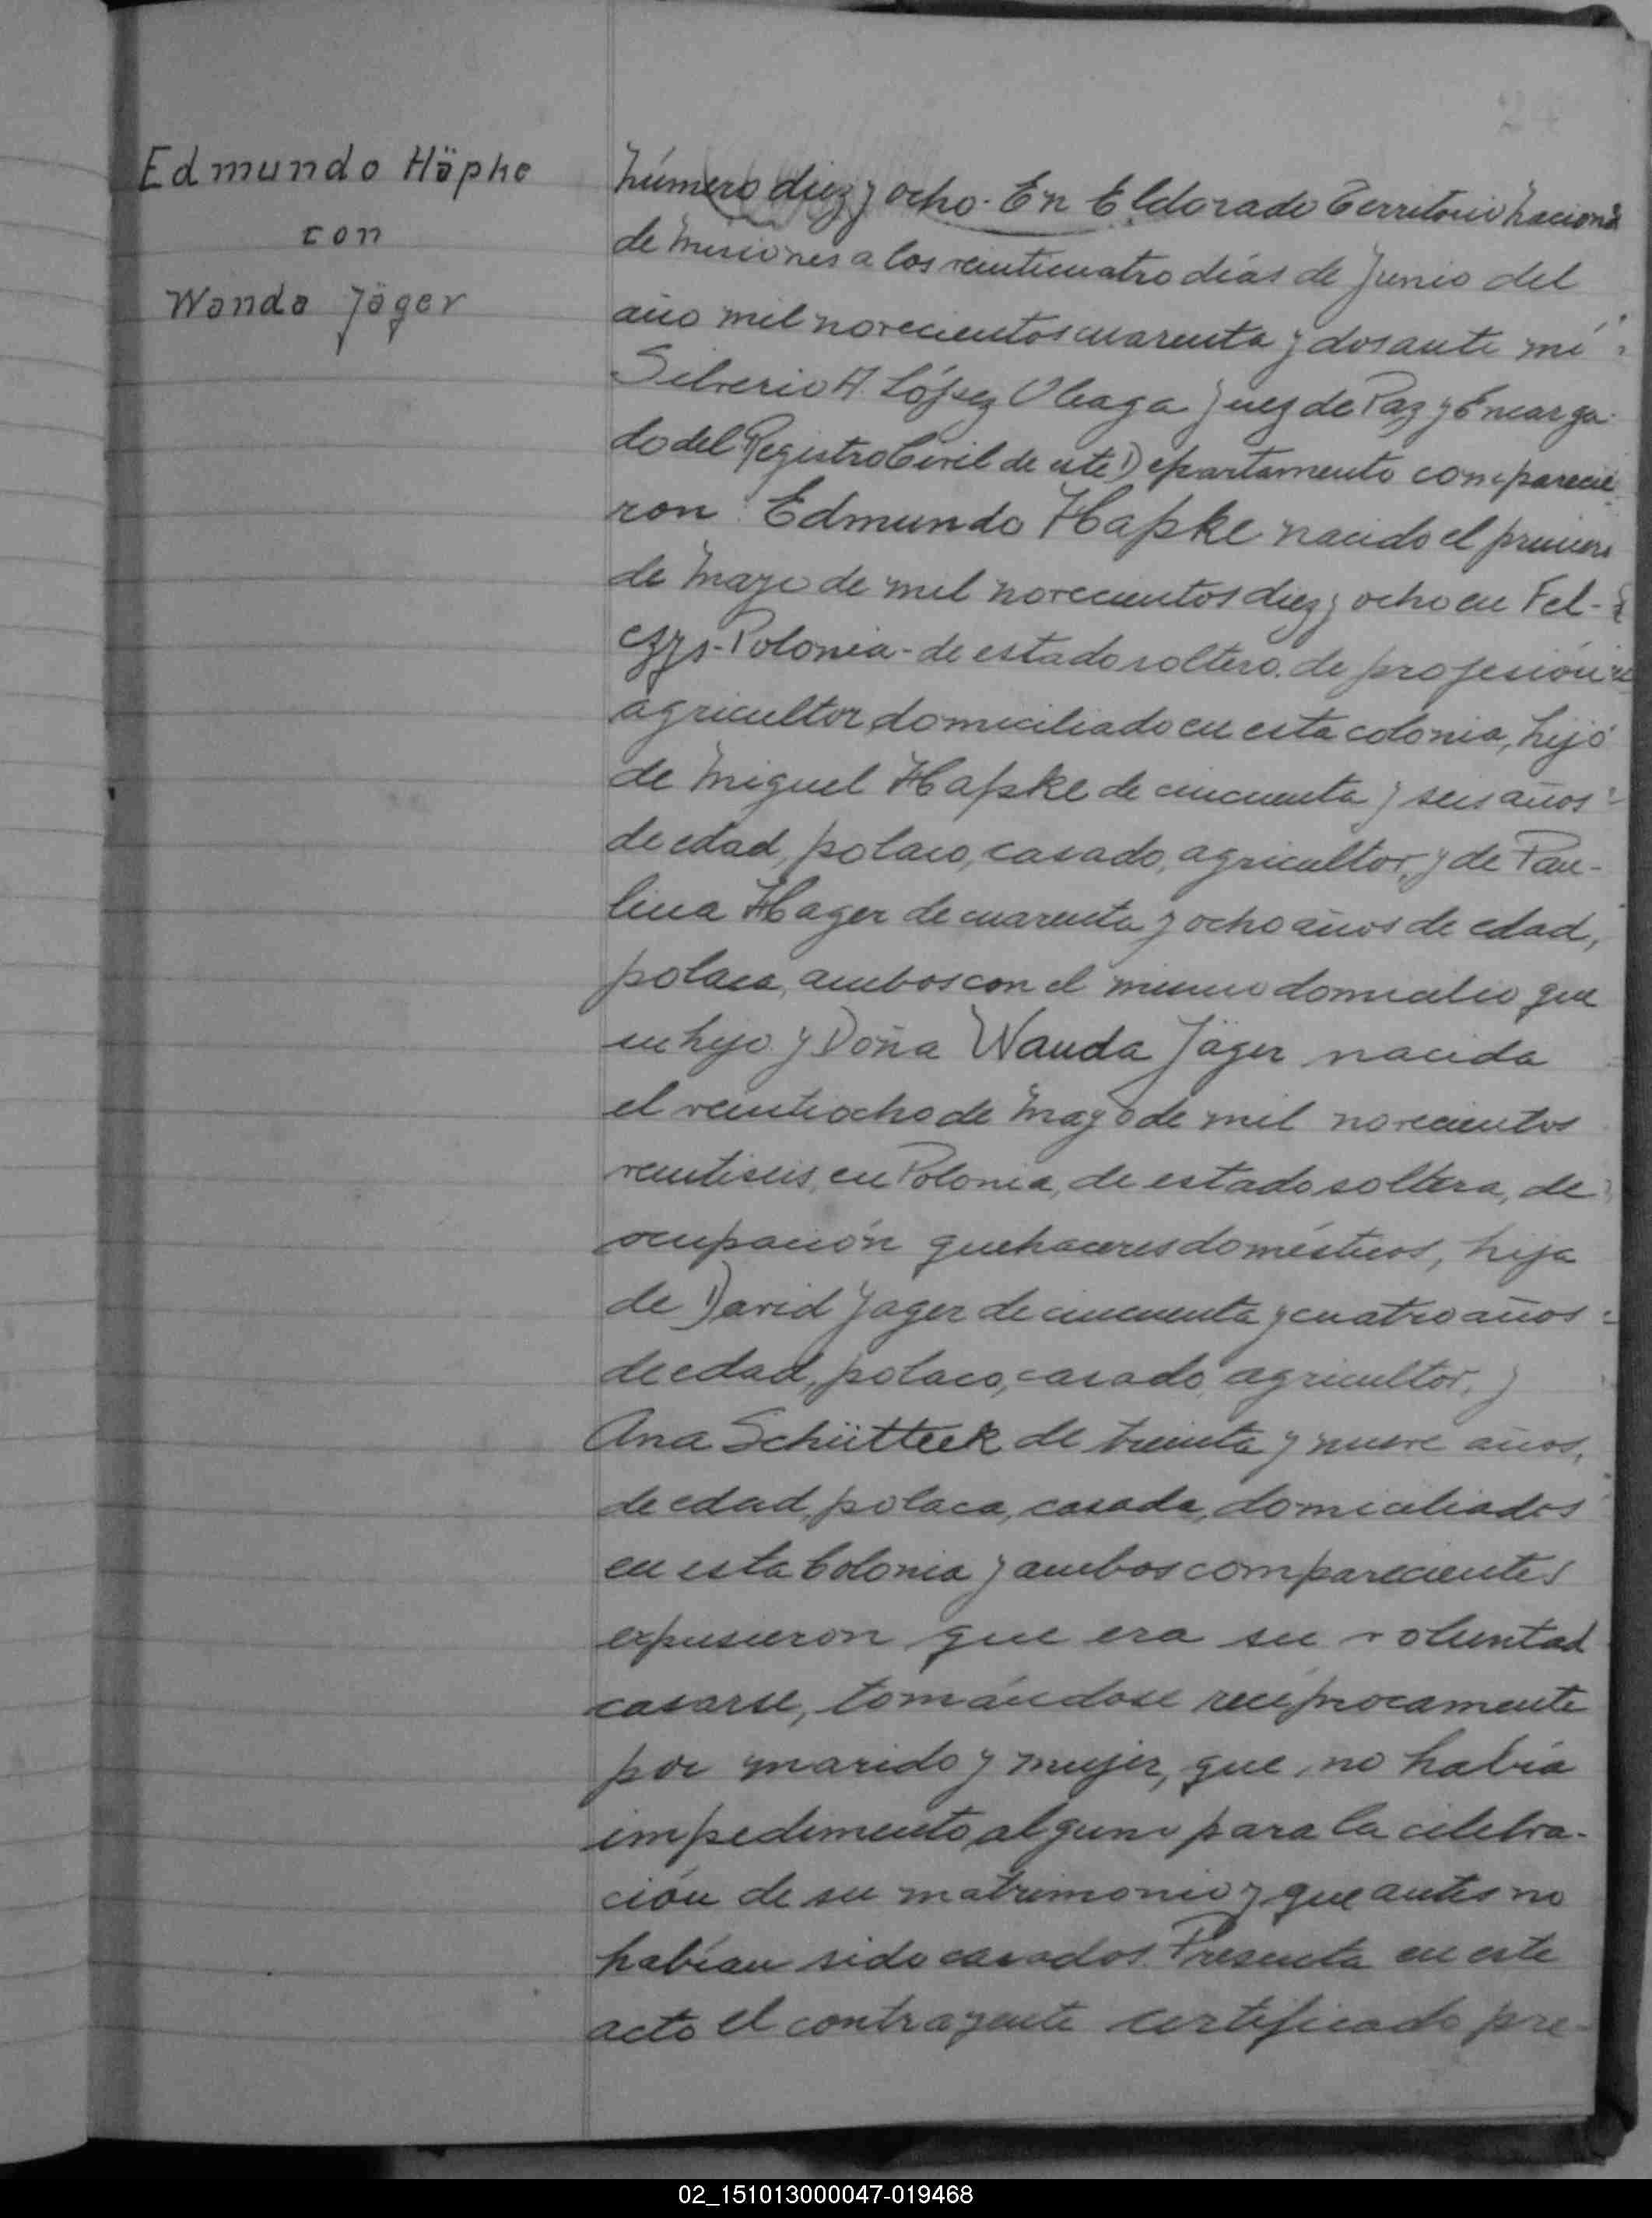 Edmundo Häpke
con
Wanda Jäger
Número diez y ocho. En Eldorado Territorio Nacional
de Misiones a los veinticuatro días de Junio del
año mil novecientos cuarenta y dos ante mí
Silverio A. López Oleaga Juez de Paz y Encarga-
do del Registro Civil de este Departamento comparecie
ron: Edmundo Hapke nacido el primero
de Mayo de mil novecientos diez y ocho en Fel-
czys-Polonia-de estado soltero, de profesión
agricultor, domiciliado en esta colonia, hijo
de Miguel Hapke de cincuenta y seis años
de edad, polaco, casado, agricultor, y de Pau-
lina Hager de cuarenta y ocho años de edad,
polaca, ambos con el mismo domicilio que
su hijo y Doña Wanda Jäger nacida
el veintiocho de Mayo de mil novecientos
veintiseis, en Polonia, de estado soltera, de
ocupación quehaceres domésticos, hija
de David Jager de cincuenta y cuatro años
de edad, polaco, casado, agricultor, y
Ana Schütteek de treinta y nueve años,
de edad, polaca, casada, domiciliados
en esta Colonia y ambos comparecientes
expusieron que era su voluntad
casarse, tomándose recíprocamente
por marido y mujer, que no había
impedimento alguno para la celebra-
ción de su matrimonio y que antes no
habían sido casados. Presenta en este
acto el contrayente certificado pre-
02_151013000047-019468